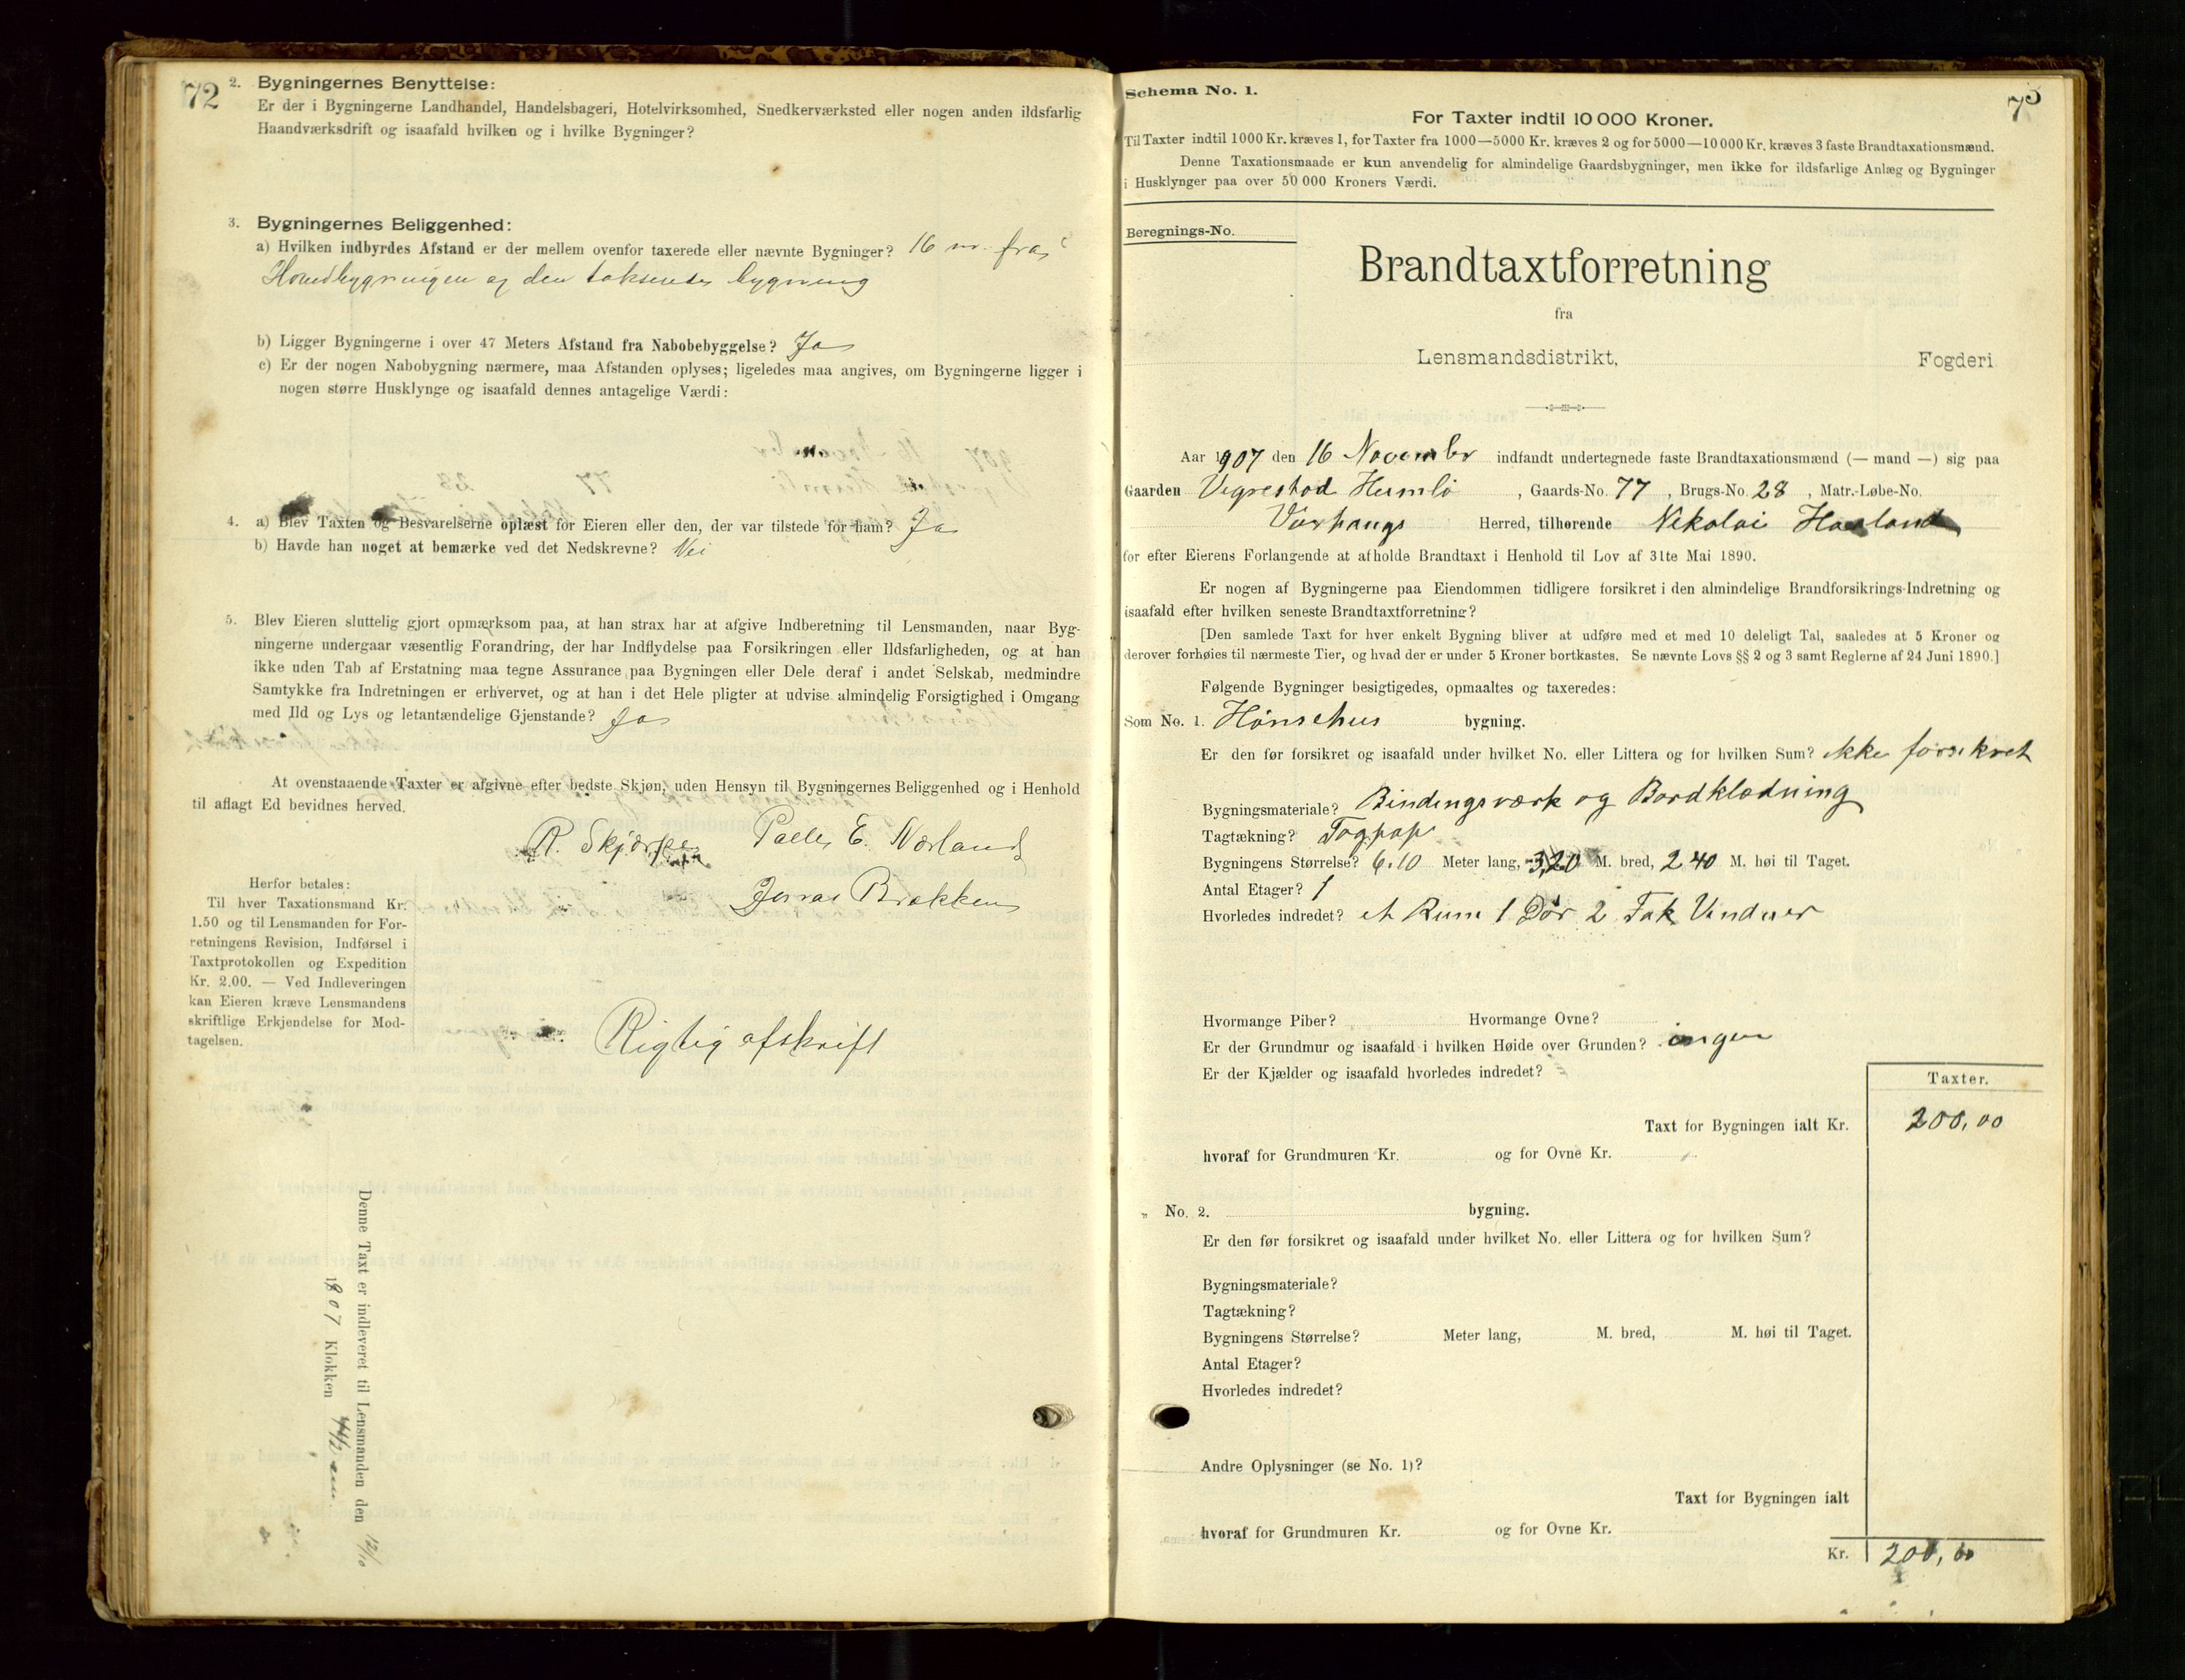 72
2. Bygningernes Benyttelse:
Er der i Bygningerne Landhandel, Handelsbageri, Hotelvirksomhed, Snedkerværksted eller nogen anden ildsfarlig
Haandværksdrift og isaafald hvilken og i hvilke Bygninger?
3. Bygningernes Beliggenhed:
a) Hvilken indbyrdes Afstand er der mellem ovenfor taxerede eller nævnte Bygninger? 16 m. fra
Hovedbygningen og den takserede bygning
b) Ligger Bygningerne i over 47 Meters Afstand fra Nabobebyggelse? Ja
c) Er der nogen Nabobygning nærmere, maa Afstanden oplyses; ligeledes maa angives, om Bygningerne ligger i
nogen større Husklynge og isaafald dennes antagelige Værdi:
4. a) Blev Taxten og Besvarelserne oplæst for Eieren eller den, der var tilstede for ham? Ja
b) Havde han noget at bemærke ved det Nedskrevne? Nei
5. Blev Eieren sluttelig gjort opmærksom paa, at han strax har at afgive Indberetning til Lensmanden, naar Byg-
ningerne undergaar væsentlig Forandring, der har Indflydelse paa Forsikringen eller Ildsfarligheden, og at han
ikke uden Tab af Erstatning maa tegne Assurance paa Bygningen eller Dele deraf i andet Selskab, medmindre
Samtykke fra Indretningen er erhvervet, og at han i det Hele pligter at udvise almindelig Forsigtighed i Omgang
med Ild og Lys og letantændelige Gjenstande? Ja
At ovenstaaende Taxter er afgivne efter bedste Skjøn, uden Hensyn til Bygningernes Beliggenhed og i Henhold
til aflagt Ed bevidnes herved.
R. Skjærpe Palle E. Nærland
Jonas Brakken
Herfor betales:
Til hver Taxationsmand Kr.
1.50 og til Lensmanden for For-
retningens Revision, Indførsel i
Taxtprotokollen og Expedition
Kr. 2.00. — Ved Indleveringen
kan Eieren kræve Lensmandens
skriftlige Erkjendelse for Mod-
tagelsen.
Rigtig afskrift
Denne Taxt er indleveret til Lensmanden den 12/10
1907 Klokken
Schema No. 1.
73
For Taxter indtil 10 000 Kroner.
Til Taxter indtil 1000 Kr. kræves 1, for Taxter fra 1000—5000 Kr. kræves 2 og for 5000—10 000 Kr. kræves 3 faste Brandtaxationsmænd.
Denne Taxationsmaade er kun anvendelig for almindelige Gaardsbygninger, men ikke for ildsfarlige Anlæg og Bygninger
i Husklynger paa over 50 000 Kroners Værdi.
Beregnings-No.
Brandtaxtforretning
fra
Lensmandsdistrikt, Fogderi
Aar 1907 den 16 November indfandt undertegnede faste Brandtaxationsmænd (— mand —) sig paa
Gaarden Vigrestad Humlö, Gaards-No. 77, Brugs-No. 28, Matr.-Løbe-No.
Varhaugs Herred, tilhørende Nikolai Haaland
for efter Eierens Forlangende at afholde Brandtaxt i Henhold til Lov af 31te Mai 1890.
Er nogen af Bygningerne paa Eiendommen tidligere forsikret i den almindelige Brandforsikrings-Indretning og
isaafald efter hvilken seneste Brandtaxtforretning?
[Den samlede Taxt for hver enkelt Bygning bliver at udføre med et med 10 deleligt Tal, saaledes at 5 Kroner og
derover forhøies til nærmeste Tier, og hvad der er under 5 Kroner bortkastes. Se nævnte Lovs §§ 2 og 3 samt Reglerne af 24 Juni 1890.]
Følgende Bygninger besigtigedes, opmaaltes og taxeredes:
Som No. 1. Hönsehus bygning.
Er den før forsikret og isaafald under hvilket No. eller Littera og for hvilken Sum? ikke forsikret
Bygningsmateriale? Bindingsværk og Bordklædning
Tagtækning? Tagpap
Bygningens Størrelse? 6.10 Meter lang, 3,20 M. bred, 2 40 M. høi til Taget.
Antal Etager? 1
Hvorledes indredet? et Rum 1 Dör 2 Fak Vinduer
Hvormange Piber? Hvormange Ovne?
Er der Grundmur og isaafald i hvilken Høide over Grunden? ingen
Er der Kjælder og isaafald hvorledes indredet?
Taxter.
Taxt for Bygningen ialt Kr. 200,00
hvoraf for Grundmuren Kr. og for Ovne Kr.
„ No. 2. bygning.
Er den før forsikret og isaafald under hvilket No. eller Littera og for hvilken Sum?
Bygningsmateriale?
Tagtækning?
Bygningens Størrelse? Meter lang, M. bred, M. høi til Taget.
Antal Etager?
Hvorledes indredet?
Andre Oplysninger (se No. 1)?
Taxt for Bygningen ialt
hvoraf for Grundmuren Kr. og for Ovne Kr.
Kr. 200,00